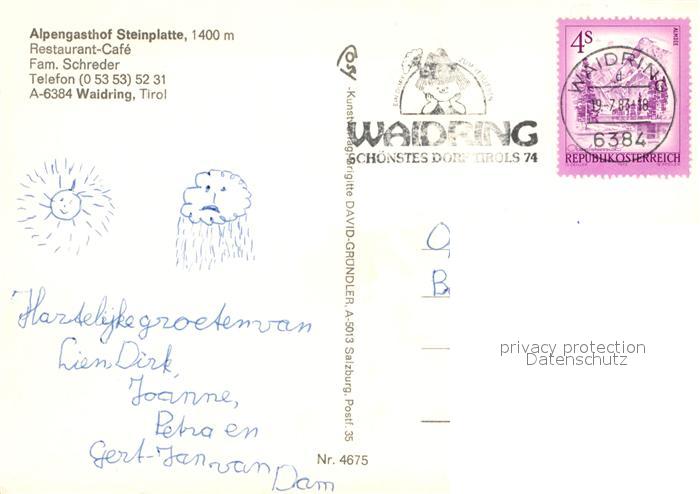 Alpengasthof Steinplatte, 1400 m
Restaurant-Café
Fam. Schreder
Telefon (0 53 53) 52 31
A-6384 Waidring, Tirol
Hartelijke groeten van
Lien Dirk,
Joanne,
Petra en
Gert-Jan van
Dam
Cosy -Kunstverlag Brigitte DAVID-GRÜNDLER, A-5013 Salzburg, Postf. 35
Nr. 4675
WAIDRING
SCHÖNSTES DORF TIROLS 74
4S
ALMSEE
WAIDRING
d
19-7.83-18
6384
REPUBLIK ÖSTERREICH
privacy protection
Datenschutz